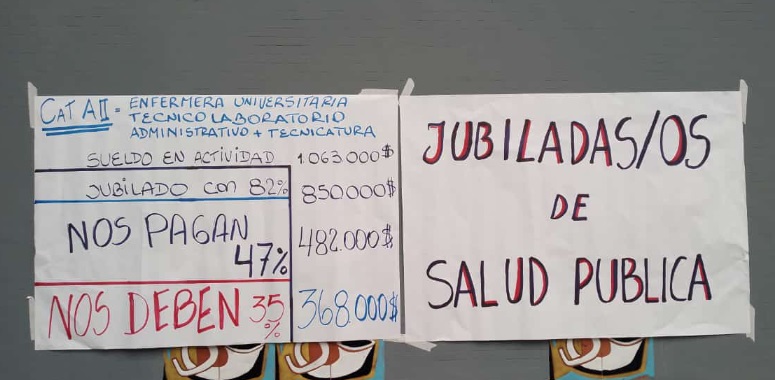 CAT AII = ENFERMERA UNIVERSITARIA
TECNICO LABORATORIO
ADMINISTRATIVO + TECNICATURA
SUELDO EN ACTIVIDAD 1.063.000$
JUBILADO con 82% 850000$
NOS PAGAN 47% 482.000$
NOS DEBEN 35% 368.000$
JUBILADAS/OS
DE
SALUD PUBLICA